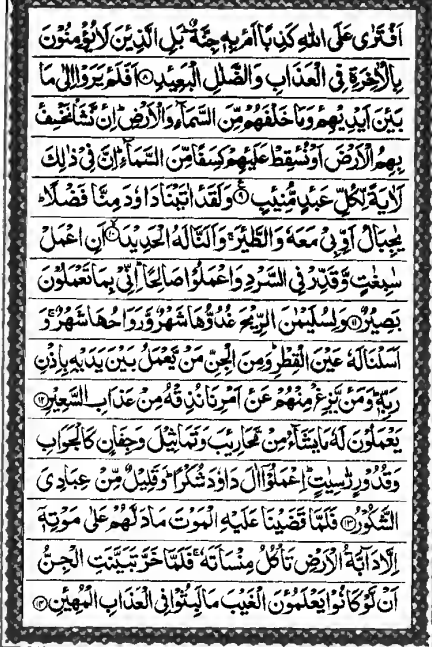 اَفْتَرٰى عَلَى اللّٰهِ كَذِبًا اَمْ بِهٖ جِنَّةٌ ؕ بَلِ الَّذِيْنَ لَا يُؤْمِنُوْنَ
بِالْاٰخِرَةِ فِى الْعَذَابِ وَالضَّلٰلِ الْبَعِيْدِ ﴿۸﴾ اَفَلَمْ يَرَوْا اِلٰى مَا
بَيْنَ اَيْدِيْهِمْ وَمَا خَلْفَهُمْ مِّنَ السَّمَآءِ وَالْاَرْضِ ؕ اِنْ نَّشَاْ نَخْسِفْ
بِهِمُ الْاَرْضَ اَوْ نُسْقِطْ عَلَيْهِمْ كِسَفًا مِّنَ السَّمَآءِ ؕ اِنَّ فِىْ ذٰلِكَ
لَاٰيَةً لِّكُلِّ عَبْدٍ مُّنِيْبٍ ﴿۹﴾ وَلَقَدْ اٰتَيْنَا دَاوٗدَ مِنَّا فَضْلًا ؕ
يٰجِبَالُ اَوِّبِىْ مَعَهٗ وَالطَّيْرَ ۚ وَاَلَنَّا لَهُ الْحَدِيْدَ ﴿۱۰﴾ اَنِ اعْمَلْ
سٰبِغٰتٍ وَّقَدِّرْ فِى السَّرْدِ وَاعْمَلُوْا صَالِحًا ؕ اِنِّىْ بِمَا تَعْمَلُوْنَ
بَصِيْرٌ ﴿۱۱﴾ وَلِسُلَيْمٰنَ الرِّيْحَ غُدُوُّهَا شَهْرٌ وَّرَوَاحُهَا شَهْرٌ ۚ وَ
اَسَلْنَا لَهٗ عَيْنَ الْقِطْرِ ؕ وَمِنَ الْجِنِّ مَنْ يَّعْمَلُ بَيْنَ يَدَيْهِ بِاِذْنِ
رَبِّهٖ ؕ وَمَنْ يَّزِغْ مِنْهُمْ عَنْ اَمْرِنَا نُذِقْهُ مِنْ عَذَابِ السَّعِيْرِ ﴿۱۲﴾
يَعْمَلُوْنَ لَهٗ مَا يَشَآءُ مِنْ مَّحَارِيْبَ وَتَمَاثِيْلَ وَجِفَانٍ كَالْجَوَابِ
وَقُدُوْرٍ رّٰسِيٰتٍ ؕ اِعْمَلُوْۤا اٰلَ دَاوٗدَ شُكْرًا ؕ وَقَلِيْلٌ مِّنْ عِبَادِىَ
الشَّكُوْرُ ﴿۱۳﴾ فَلَمَّا قَضَيْنَا عَلَيْهِ الْمَوْتَ مَا دَلَّهُمْ عَلٰى مَوْتِهٖۤ
اِلَّا دَآبَّةُ الْاَرْضِ تَاْكُلُ مِنْسَاَتَهٗ ۚ فَلَمَّا خَرَّ تَبَيَّنَتِ الْجِنُّ
اَنْ لَّوْ كَانُوْا يَعْلَمُوْنَ الْغَيْبَ مَا لَبِثُوْا فِى الْعَذَابِ الْمُهِيْنِ ﴿۱۴﴾